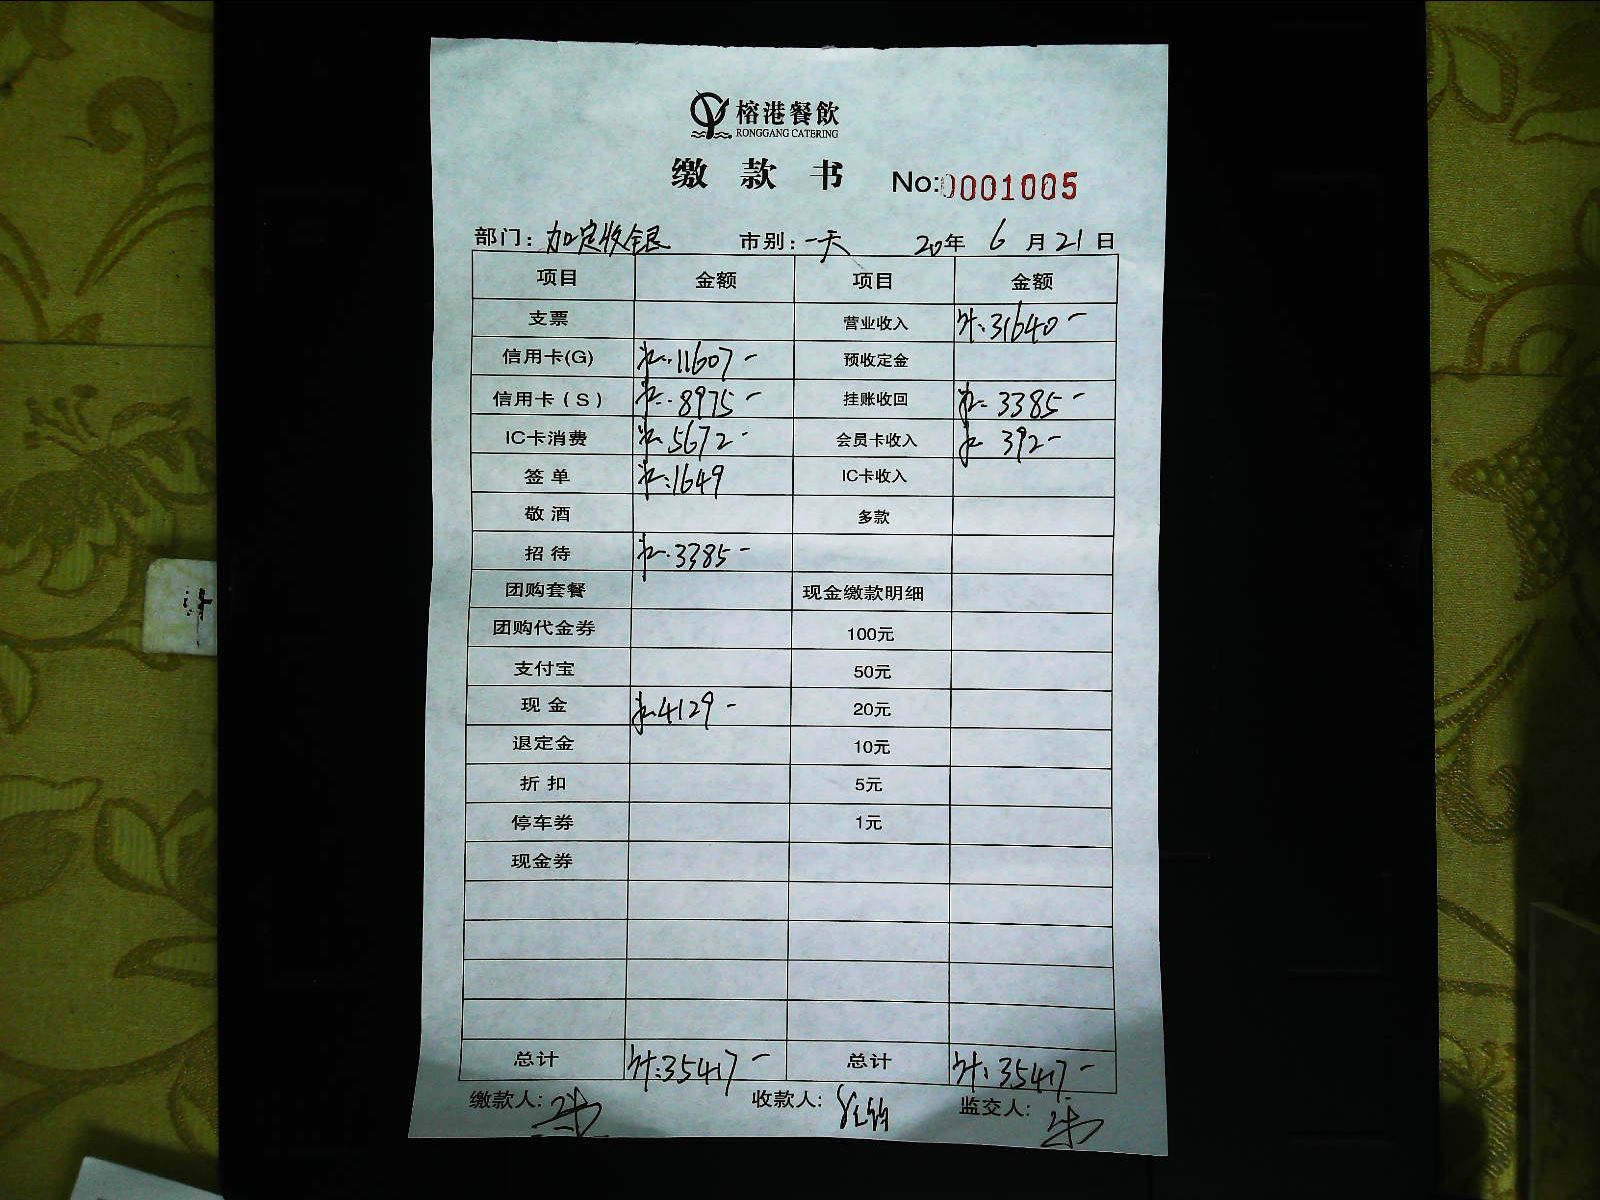 榕港餐飲
RONGGANG CATERING
缴 款 书 No:0001005
部门：加定收银 市别：一天 20年 6 月 21 日
项目 金额 项目 金额
支票 营业收入 计:31640-
信用卡(G) 11607- 预收定金
信用卡（S） 8975- 挂账收回 3385-
IC卡消费 5672- 会员卡收入 392-
签 单 1649 IC卡收入
敬 酒 多款
招 待 3385-
团购套餐 现金缴款明细
团购代金券 100元
支付宝 50元
现 金 4129- 20元
退定金 10元
折 扣 5元
停车券 1元
现金券
总计 计:35417- 总计 计:35417-
缴款人: 收款人: 监交人: